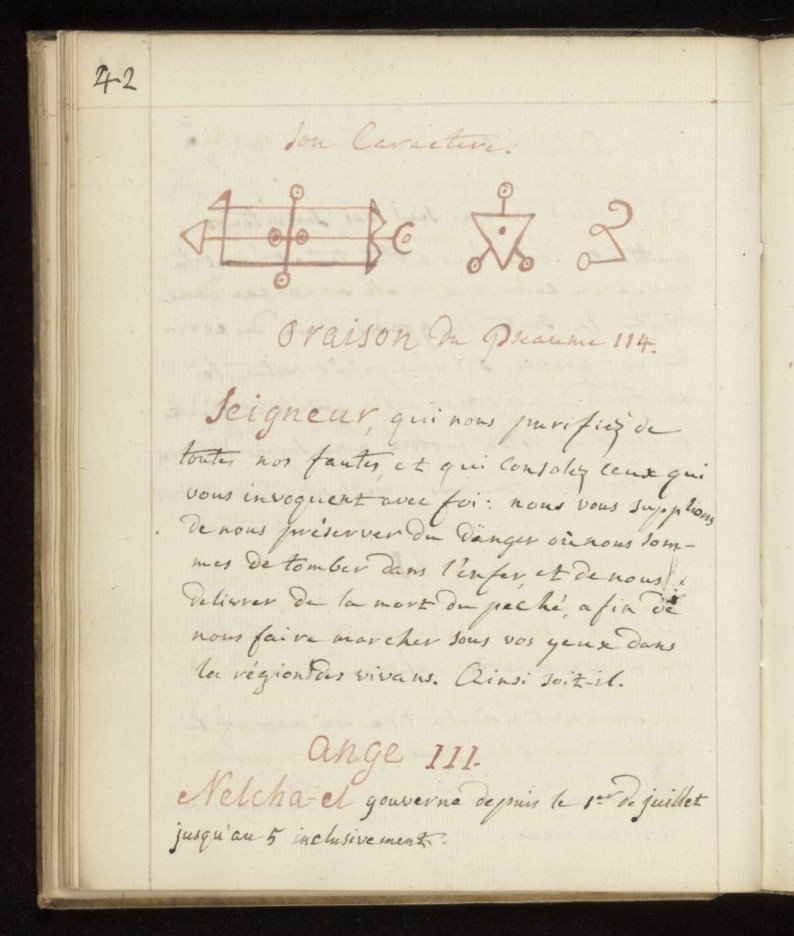 42
Son Caractere.
Oraison du Pseaume 114.
Seigneur, qui nous purifiez de
toutes nos fautes, et qui consolez ceux qui
vous invoquent avec foi: nous vous supplions
de nous préserver du danger où nous som-
mes de tomber dans l'enfer, et de nous
delivrer de la mort du peché, afin de
nous faire marcher sous vos yeux dans
la région des vivans. Ainsi soit-il.
Ange III.
Nelcha-el gouverne depuis le 1er de juillet
jusqu'au 5 inclusivement.